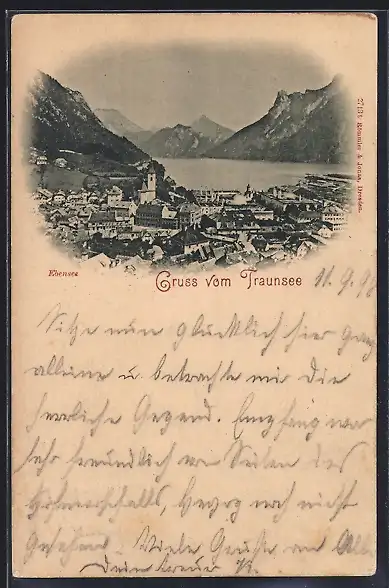 27134 Römmler & Jonas, Dresden.
Ebensee
Gruss vom Traunsee
11.9.98
Sitze nun glücklich hier ganz
alleine u. betrachte mir die
herrliche Gegend. Empfang war
sehr freundlich von Seiten des
Herzog noch nicht
Gesehen. Viele Grüsse an Alle
Dein treuer